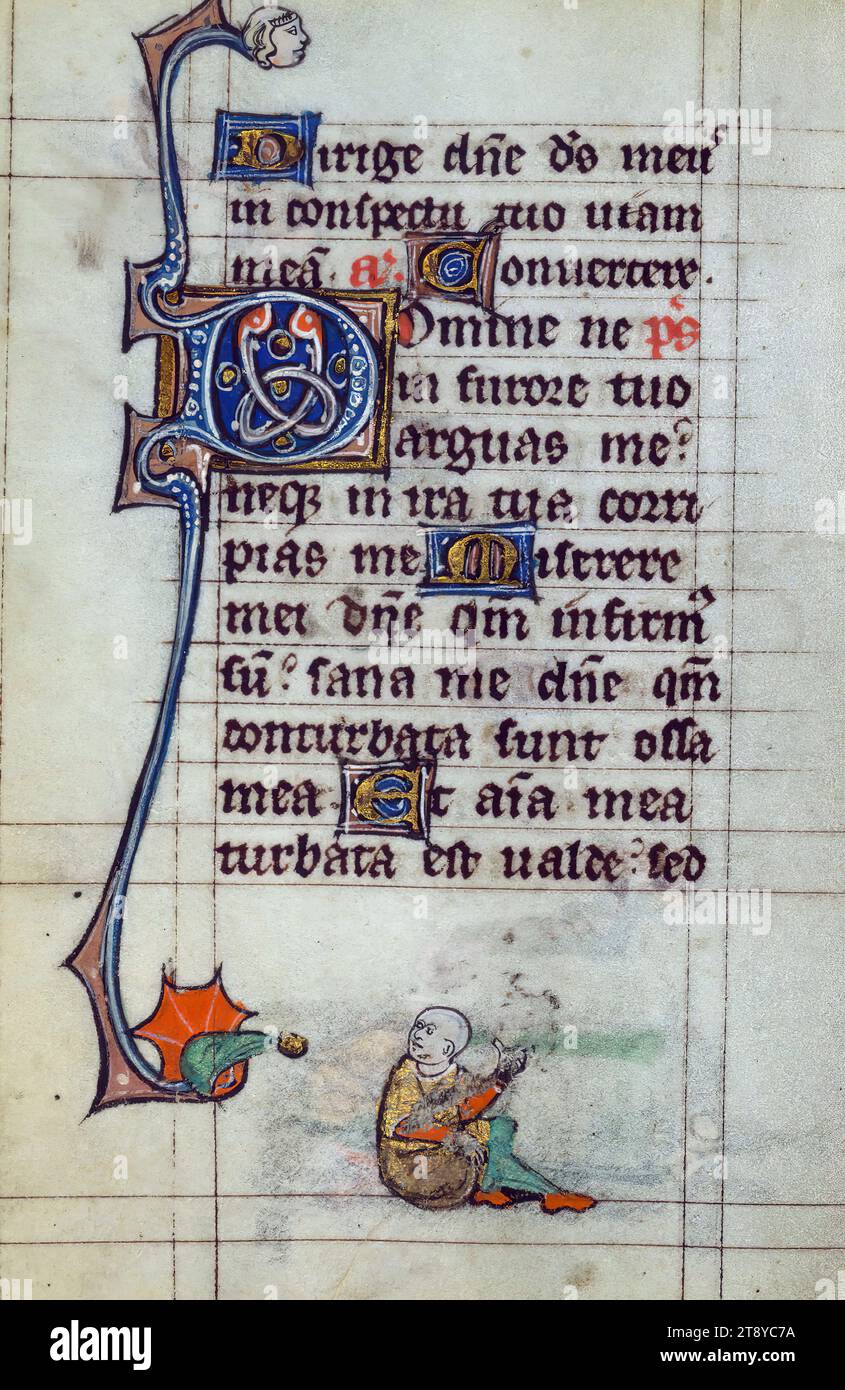 Dirige dn̄e d̄s meuˢ
in conspectu tuo uiam
meā. aͬ. Conuertere.
Domine ne pˢ̄
in furore tuo
arguas me?
neqꝫ in ira tua corri
pias me Miserere
mei dn̄e qm̄ infirmꝰ
sū? sana me dn̄e qm̄
conturbata sunt ossa
mea. Et aīa mea
turbata est ualde? sed
alamy
Image ID: 2T8YC7A
www.alamy.com